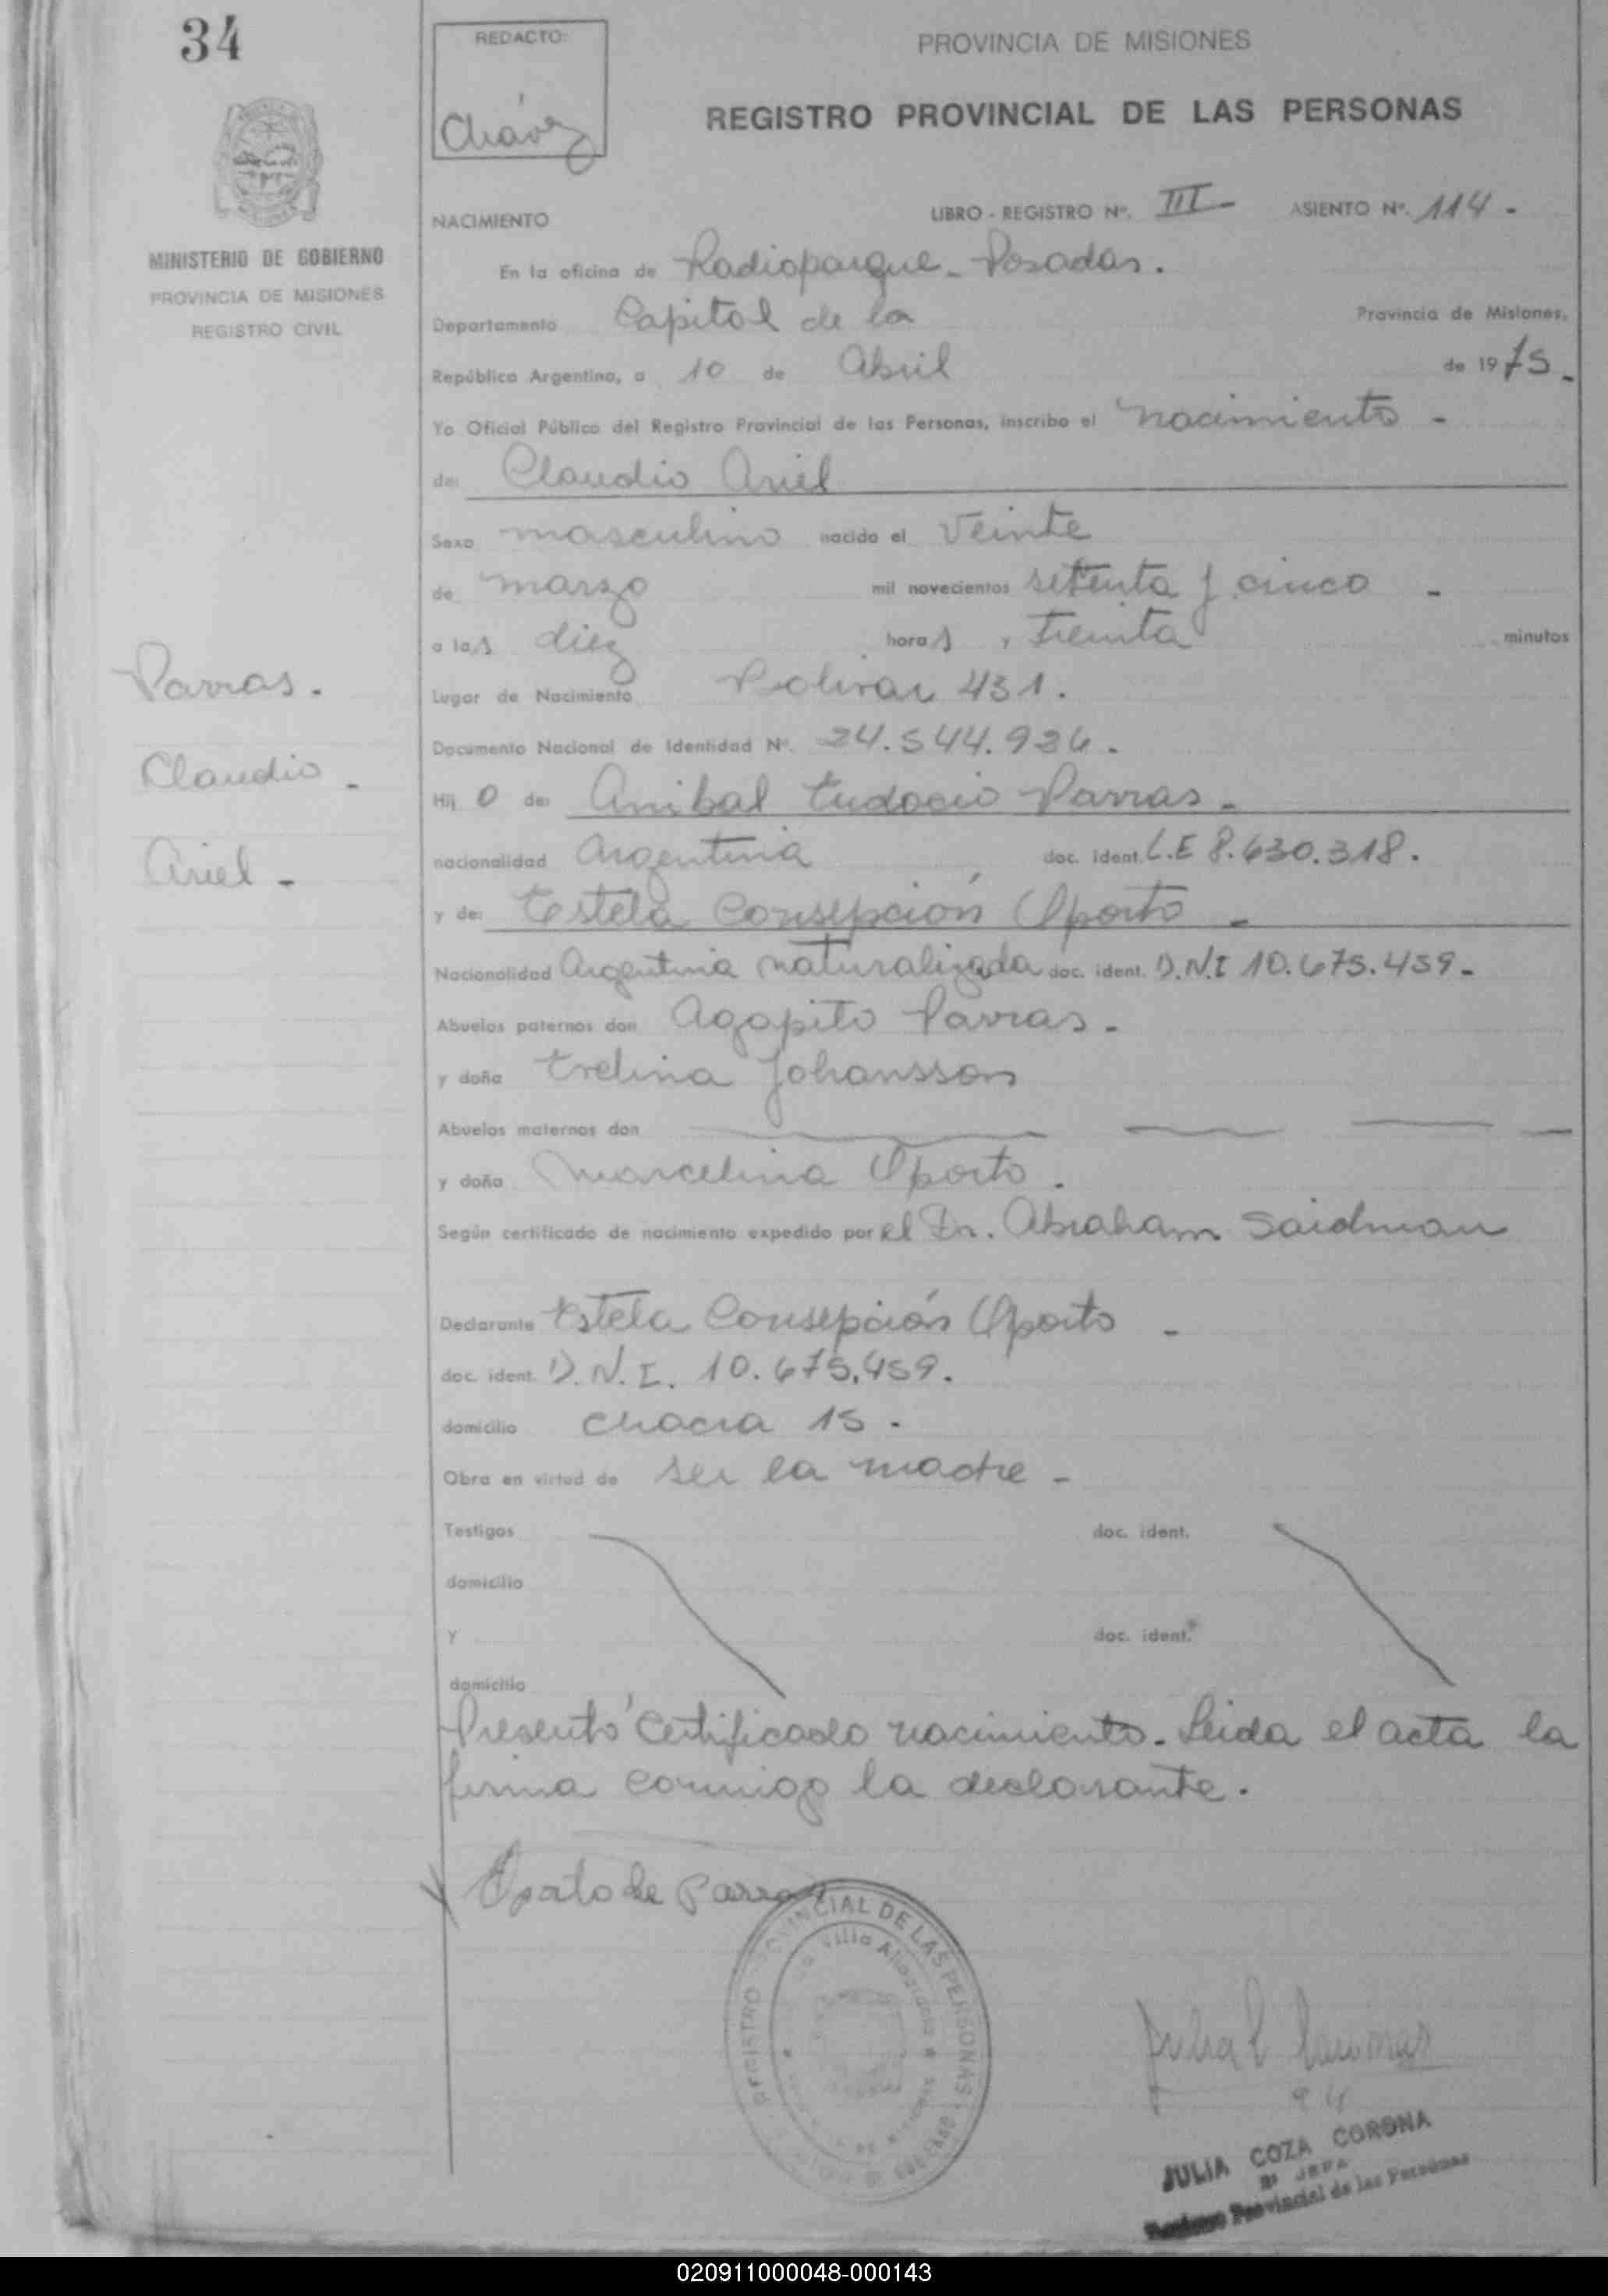 34
REDACTO:
Chávez
PROVINCIA DE MISIONES
REGISTRO PROVINCIAL DE LAS PERSONAS
MINISTERIO DE GOBIERNO
PROVINCIA DE MISIONES
REGISTRO CIVIL
NACIMIENTO LIBRO - REGISTRO Nº. III - ASIENTO Nº. 114 -
En la oficina de Radioparque - Posadas.
Departamento Capital de la Provincia de Misiones,
República Argentina, a 10 de Abril de 1975 -
Yo Oficial Público del Registro Provincial de las Personas, inscribo el nacimiento -
de: Claudio Ariel
Sexo masculino nacido el Veinte
de marzo mil novecientos setenta y cinco -
a las diez horas, treinta minutos
Lugar de Nacimiento Bolivar 431.
Documento Nacional de Identidad Nº. 24.544.926.
Hij o de: Anibal Eudocio Parras -
nacionalidad Argentina doc. ident. L.E 8.630.318.
y de: Estela Consepción Oporto -
Nacionalidad Argentina naturalizada doc. ident. D.N.I 10.675.459 -
Abuelos paternos don Agapito Parras -
y doña Evelina Johansson
Abuelos maternos don
y doña Marcelina Oporto.
Según certificado de nacimiento expedido por el Dr. Abraham Saidman
Declarante Estela Consepción Oporto -
doc. ident. D.N.I. 10.675.459.
domicilio Chacra 15.
Obra en virtud de ser la madre -
Testigos doc. ident.
domicilio
y doc. ident.
domicilio
Presentó Certificado nacimiento - Leida el acta la
firma conmigo la declarante.
Parras.
Claudio -
Ariel -
Oporto de Parras
REGISTRO PROVINCIAL DE LAS PERSONAS
JULIA COZA CORONA
JEFA
Provincial de las Personas
020911000048-000143